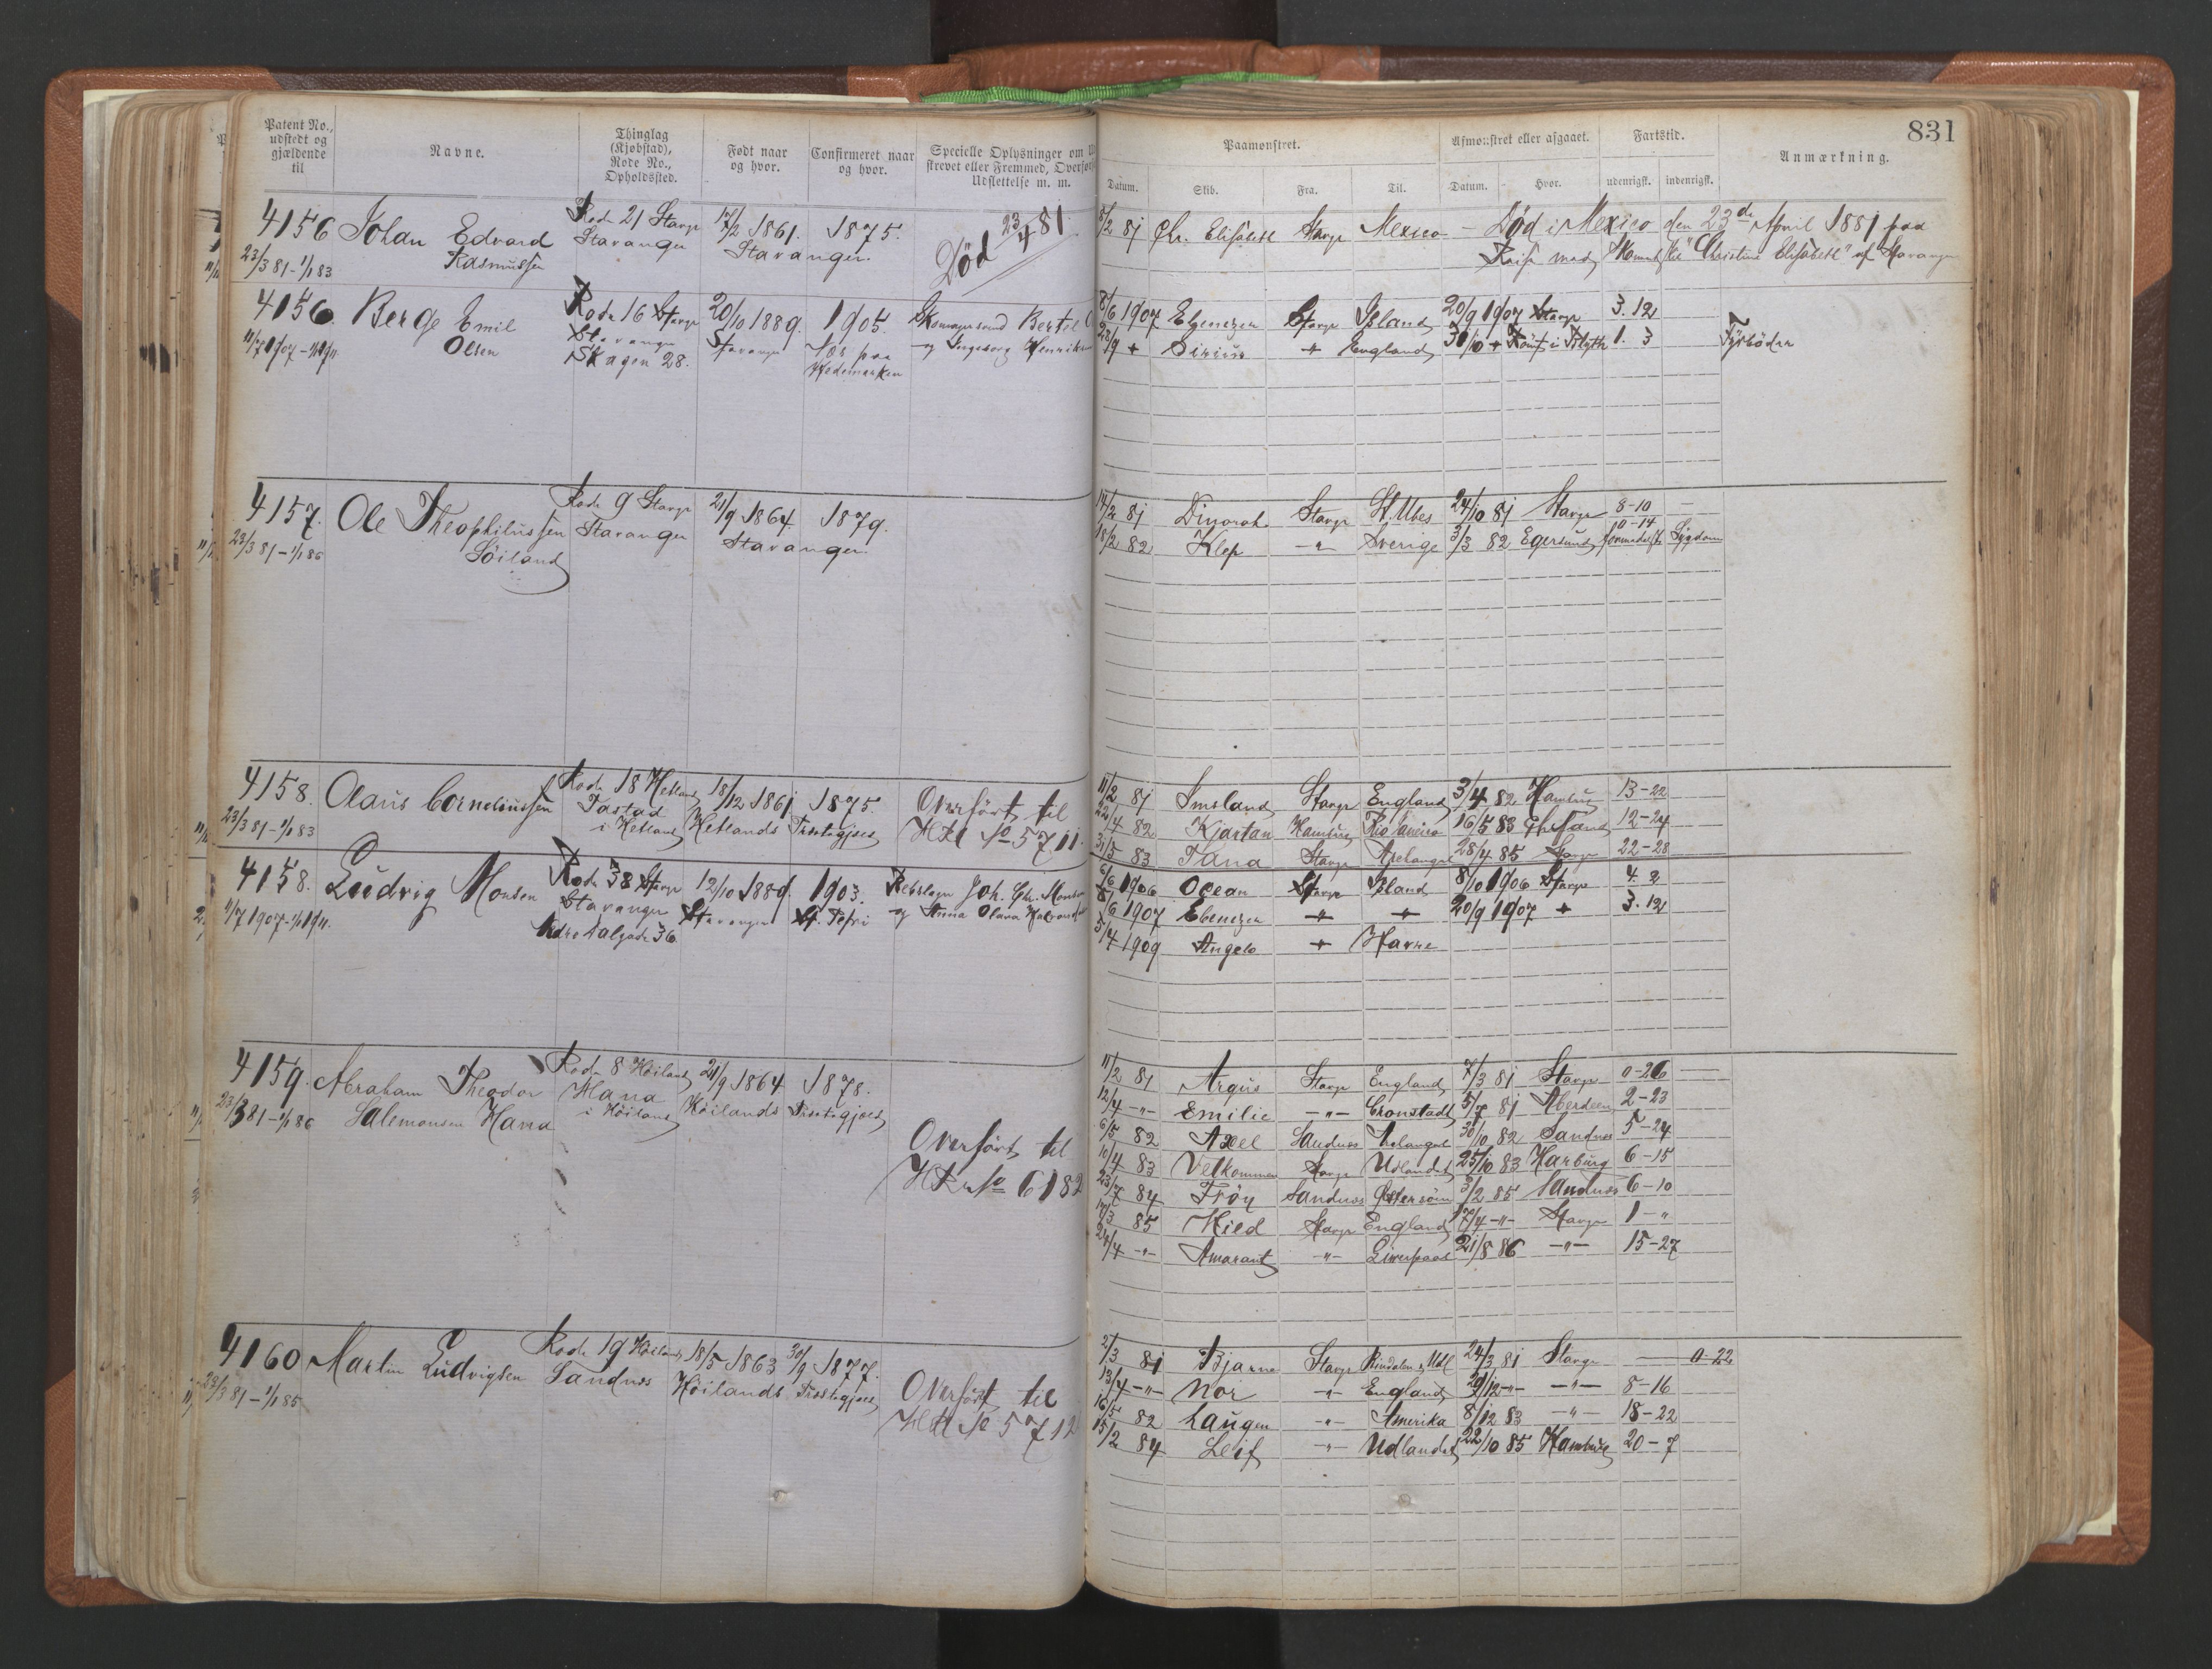 831
Patent No., udstedt og gjældende til
Navne.
Thinglag (Kjøbstad), Rode No., Opholdssted.
Født naar og hvor.
Confirmeret naar og hvor.
Specielle Oplysninger om
skrevet eller Fremmed, Overført
Udslettelse m. m.
Paamønstret.
Afmønstret eller afgaaet.
Fartstid.
Anmærkning.
Datum. Skib. Fra. Til. Datum. Hvor. udenrigsk. indenrigsk.
4156 Johan Edvard Rasmussen
23/3 81 - 1/1 83
Rode 21 Stavgr Stavanger
17/2 1861. Stavanger.
1875.
Død 23/4 81
8/2 81 Chr. Elisabeth Stavgr Mexico - Død i Mexico den 23de April 1881 paa
Reise med Skibet "Christine Elisabeth" af Stavanger
4156. Berge Emil Olsen
11/7 1907 - 1/1 1911
Rode 16 Stavgr Stavanger Skagen 28.
20/10 1889. Stavanger
1905. Næs paa Hedemarken
Skomagersvend Bertil O
og Ingeborg Henriks
8/6 1907 Ebenezer Stavgr Island 20/9 1907 Stavgr 3. 12
23/9 " Sirius " England 30/10 " Røm i Blyth 1. 3 Fyrbøder
4157. Ole Theophilussen Söiland
23/3 81 - 1/1 86
Rode 9 Stavgr Stavanger
21/9 1864. Stavanger.
1879.
14/2 81 Dinorah Stavgr St. Ubes 24/10 81 Stavgr 8-10 —
18/2 82 Klep -"- Sverige 3/3 82 Egersund 0-14 Sygdom
4158. Olaus Corneliussen
23/3 81 - 1/1 83
Rode 18 Hetland Tastad i Hetland
18/12 1861 Hetlands
1875. Præstegjæld
Overført til
Htl No 5711.
11/2 81 Imsland Stavgr England 3/4 82 Hamburg 13-22
22/4 82 Kjartan Hamburg Rio Janeiro 16/5 83 Chrsand 12-24
31/5 83 Tana Stavgr Archangel 28/4 85 Stavgr 22-28
4158. Ludvig Monsen
11/7 1907 - 1/1 1911.
Rode 38 Stavgr Stavanger Nedre Dalgade 36
12/10 1889. Stavanger
1903. St. Petri
Rebslager Joh. Chr. Monsen
og Anna Olava Halvorsdatter
6/6 1906 Ocean Stavgr Island 8/10 1906 Stavgr 4. 2
8/6 1907 Ebenezer " " 20/9 1907 " 3. 12
5/4 1909 Angelo " Havre
4159. Abraham Theodor Salemonsen Hana
23/3 81 - 1/1 86
Rode 8 Höiland Hana i Höiland
21/9 1864 Höilands
1878. Præstegjæld
Overført til
Htl No 6182
11/2 81 Argus Stavgr England 7/3 81 Stavgr 0-26 —
12/4 -"- Emilie -"- Cronstadt 5/7 81 Aberdeen 2-23
6/5 82 Axel Sandnæs Archangel 30/10 82 Sandnæs 5-24
10/4 83 Velkommen Stavgr Udlandet 25/10 83 Harburg 6-15
23/7 84 Fröy Sandnæs Østersøen 3/2 85 Sandnæs 6-10
17/3 85 Hild Stavgr England 17/4 -"- Stavgr 1-"
24/4 -"- Amarant -"- Liverpool 21/8 86 -"- 15-27
4160 Martin Ludvigsen
23/3 81 - 1/1 85
Rode 19 Höiland Sandnæs
18/5 1863 Höilands
30/9 1877. Præstegjæld
Overført til
Htl No 5712
2/3 81 Bjarne Stavgr 24/3 81 Stavgr — 0-22
13/4 -"- Nor -"- England 29/12 -"- -"- 8-16
16/5 82 Laugen -"- Amerika 8/12 83 -"- 18-22
15/2 84 Leif -"- Udlandet 22/10 85 Hamburg 20-7